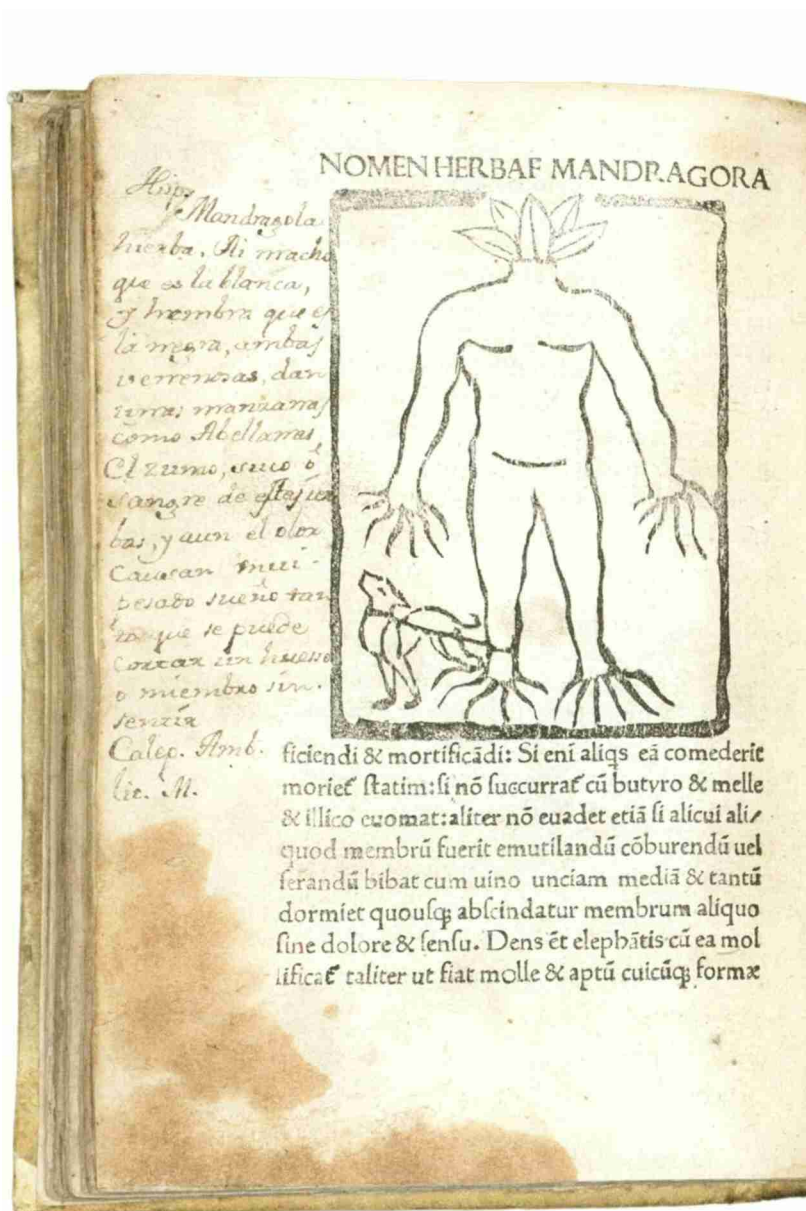 NOMEN HERBAE MANDRAGORA
Hisp.
Mandragola
hierba. Ai macho
que es la blanca,
y hembra que es
la negra, ambas
venenosas, dan
unas manzanas
como Abellanas,
El zumo, suco ò
sangre de estas ier
bas, y aun el olor
causan mui
pesado sueño tan
to que se puede
cortar un huesso
o miembro sin
sentir
Calep. Amb.
lit. M.
ficiendi & mortificãdi: Si enĩ aliqs eã comederit
moriet̃ ſtatim: ſi nõ ſuccurrat̃ cũ butyro & melle
& illico euomat: aliter nõ euadet etiã ſi alicui ali/
quod membrũ fuerit emutilandũ cõburendũ uel
ſerandũ bibat cum uino unciam mediã & tantũ
dormiet quouſqꝫ abſcindatur membrum aliquo
ſine dolore & ſenſu. Dens ẽt elephãtis cũ ea mol
lificat̃ taliter ut fiat molle & aptũ cuicũqꝫ formæ